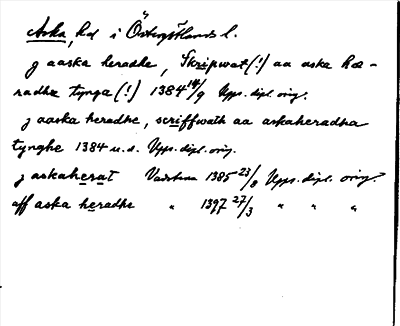 Aska, hd i Östergötlands l.
j aaska heradhe, Skripwat (!) aa aska hæ-
radhæ tynga (!) 1384 14/9 Upps. dipl. orig.
j aaska heradhe, scriffwath aa askaheradha
tynghe 1384 u.d. Upps. dipl. orig.
j askaherat Vadstena 1385 23/8 Upps. dipl. orig.
aff aska heradhe " 1397 27/3 " " "